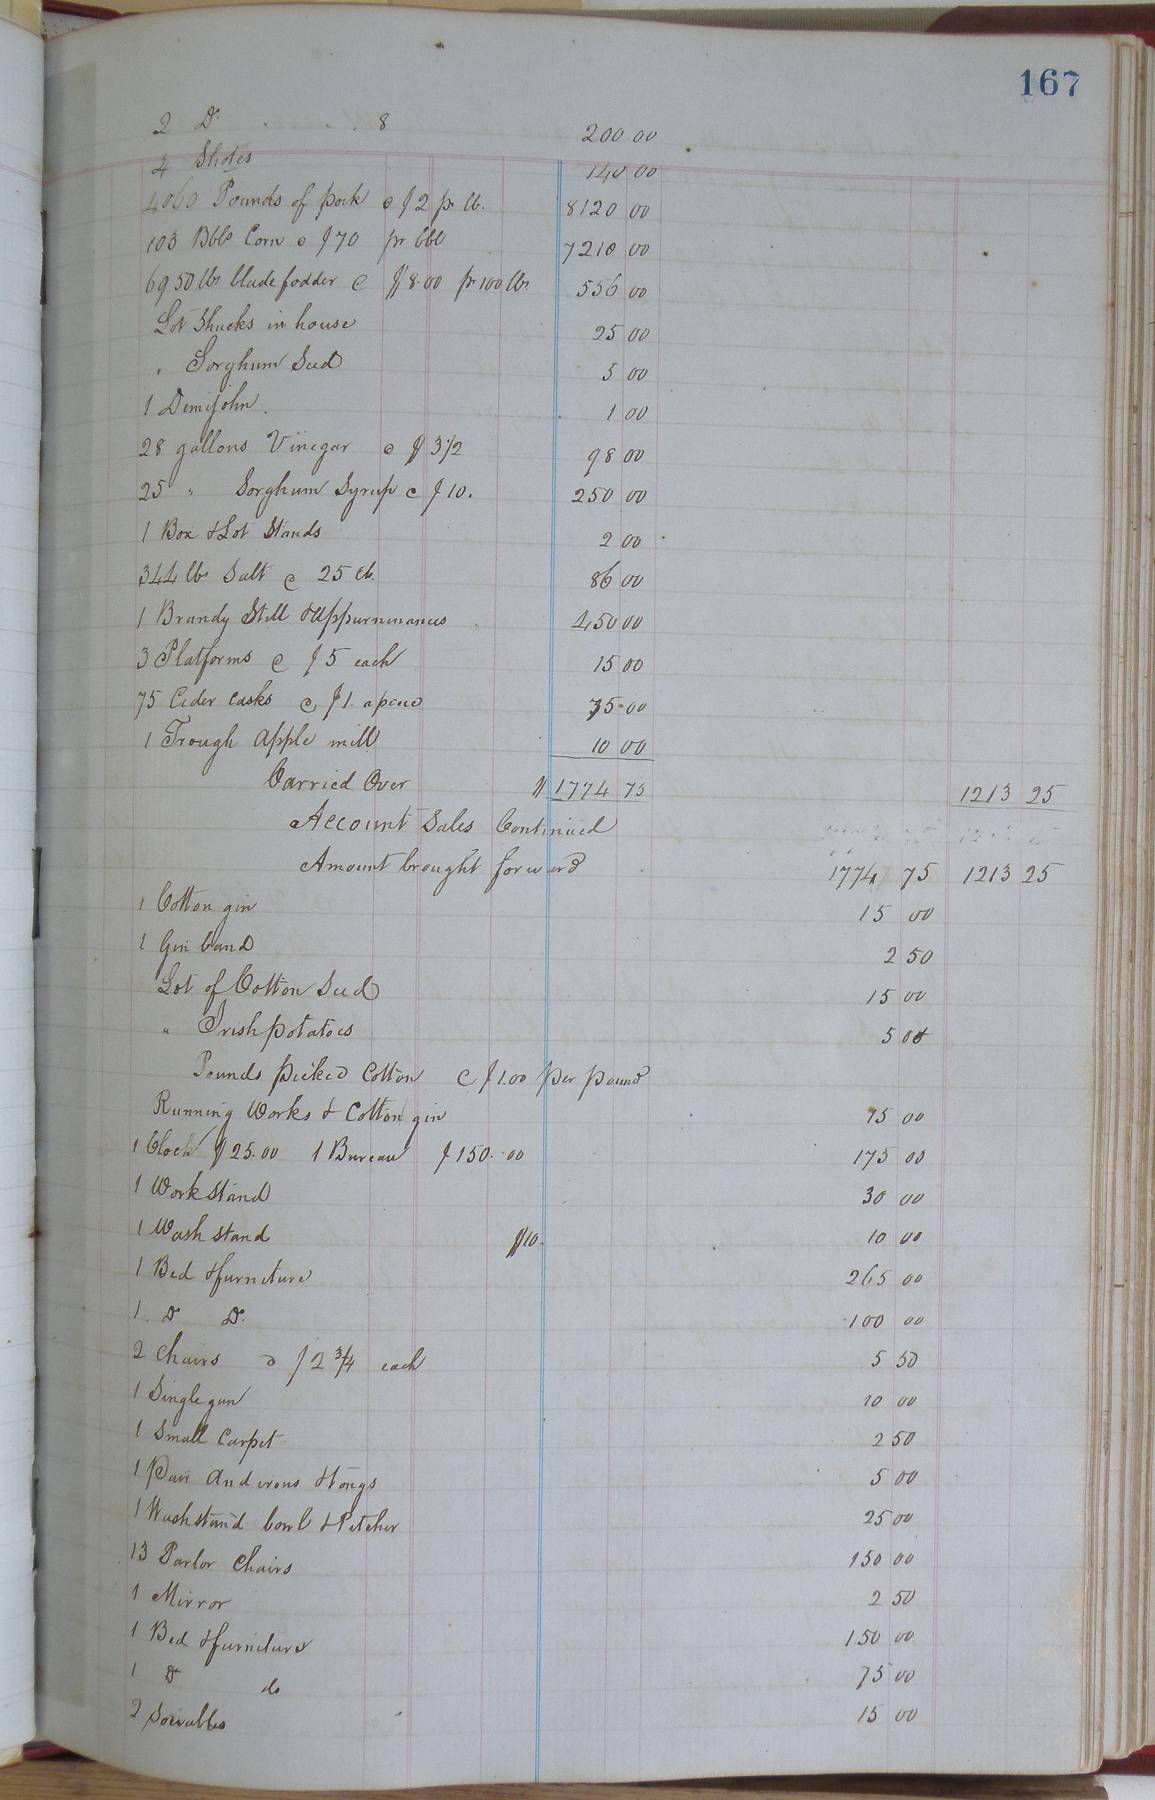 167
2 Do . . . 8 200.00
4 Shotes 140 00
4060 Pounds of pork @ $2 pr lb. 8120 00
103 Bbls Corn @ $70 pr bbl 7210 00
6950 lbs blade fodder @ $8.00 pr 100 lbs. 556 00
Lot Shucks in house 25 00
" Sorghum Seed 5 00
1 Demijohn. 1 00
28 gallons Vinegar @ $3 1/2 98 00
25 " Sorghum Syrup @ $10. 250 00
1 Box & Lot Stands 2 00
344 lbs Salt @ 25 cts. 86 00
1 Brandy Still & Appurninances 450 00
3 Platforms @ $5 each 15 00
75 Cider casks @ $1. apiece 75.00
1 Trough apple mill 10 00
Carried Over $1774 75 1213 25
Account Sales Continued
Amount brought forward 1774 75 1213 25
1 Cotton gin 15 00
1 Gin band 2 50
Lot of Cotton Seed 15 00
" Irish potatoes 5 00
Pounds picked Cotton @ $1.00 per pound
Running Works & Cotton gin 75 00
1 Clock $25.00 1 Bureau $150.00 175 00
1 Work stand 30 00
1 Wash stand $10. 10 00
1 Bed & furniture 265 00
1. Do Do. 100 00
2 Chairs @ $2 3/4 each 5 50
1 Single gun 10 00
1 Small Carpet 2 50
1 Pair Andirons & tongs 5 00
1 Washstand bowl & Pitcher 25 00
13 Parlor Chairs 150 00
1 Mirror 2 50
1 Bed & furniture 150 00
1 Do do 75 00
2 15 00